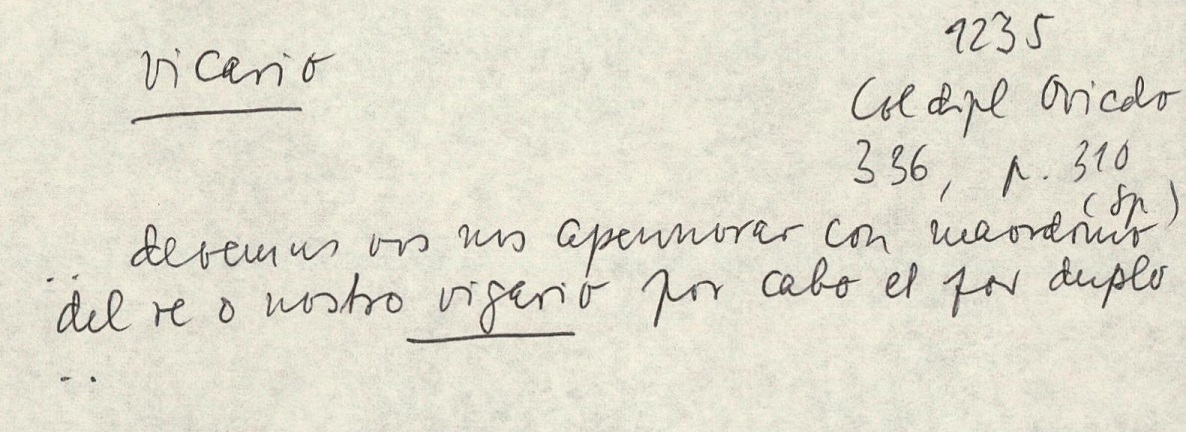 vicario
1235
Col dipl Oviedo
336, p. 310
(Sp)
.. devemus vos nos apennorar con maordomo
del re o nostro vigario por cabo et por duplo
..